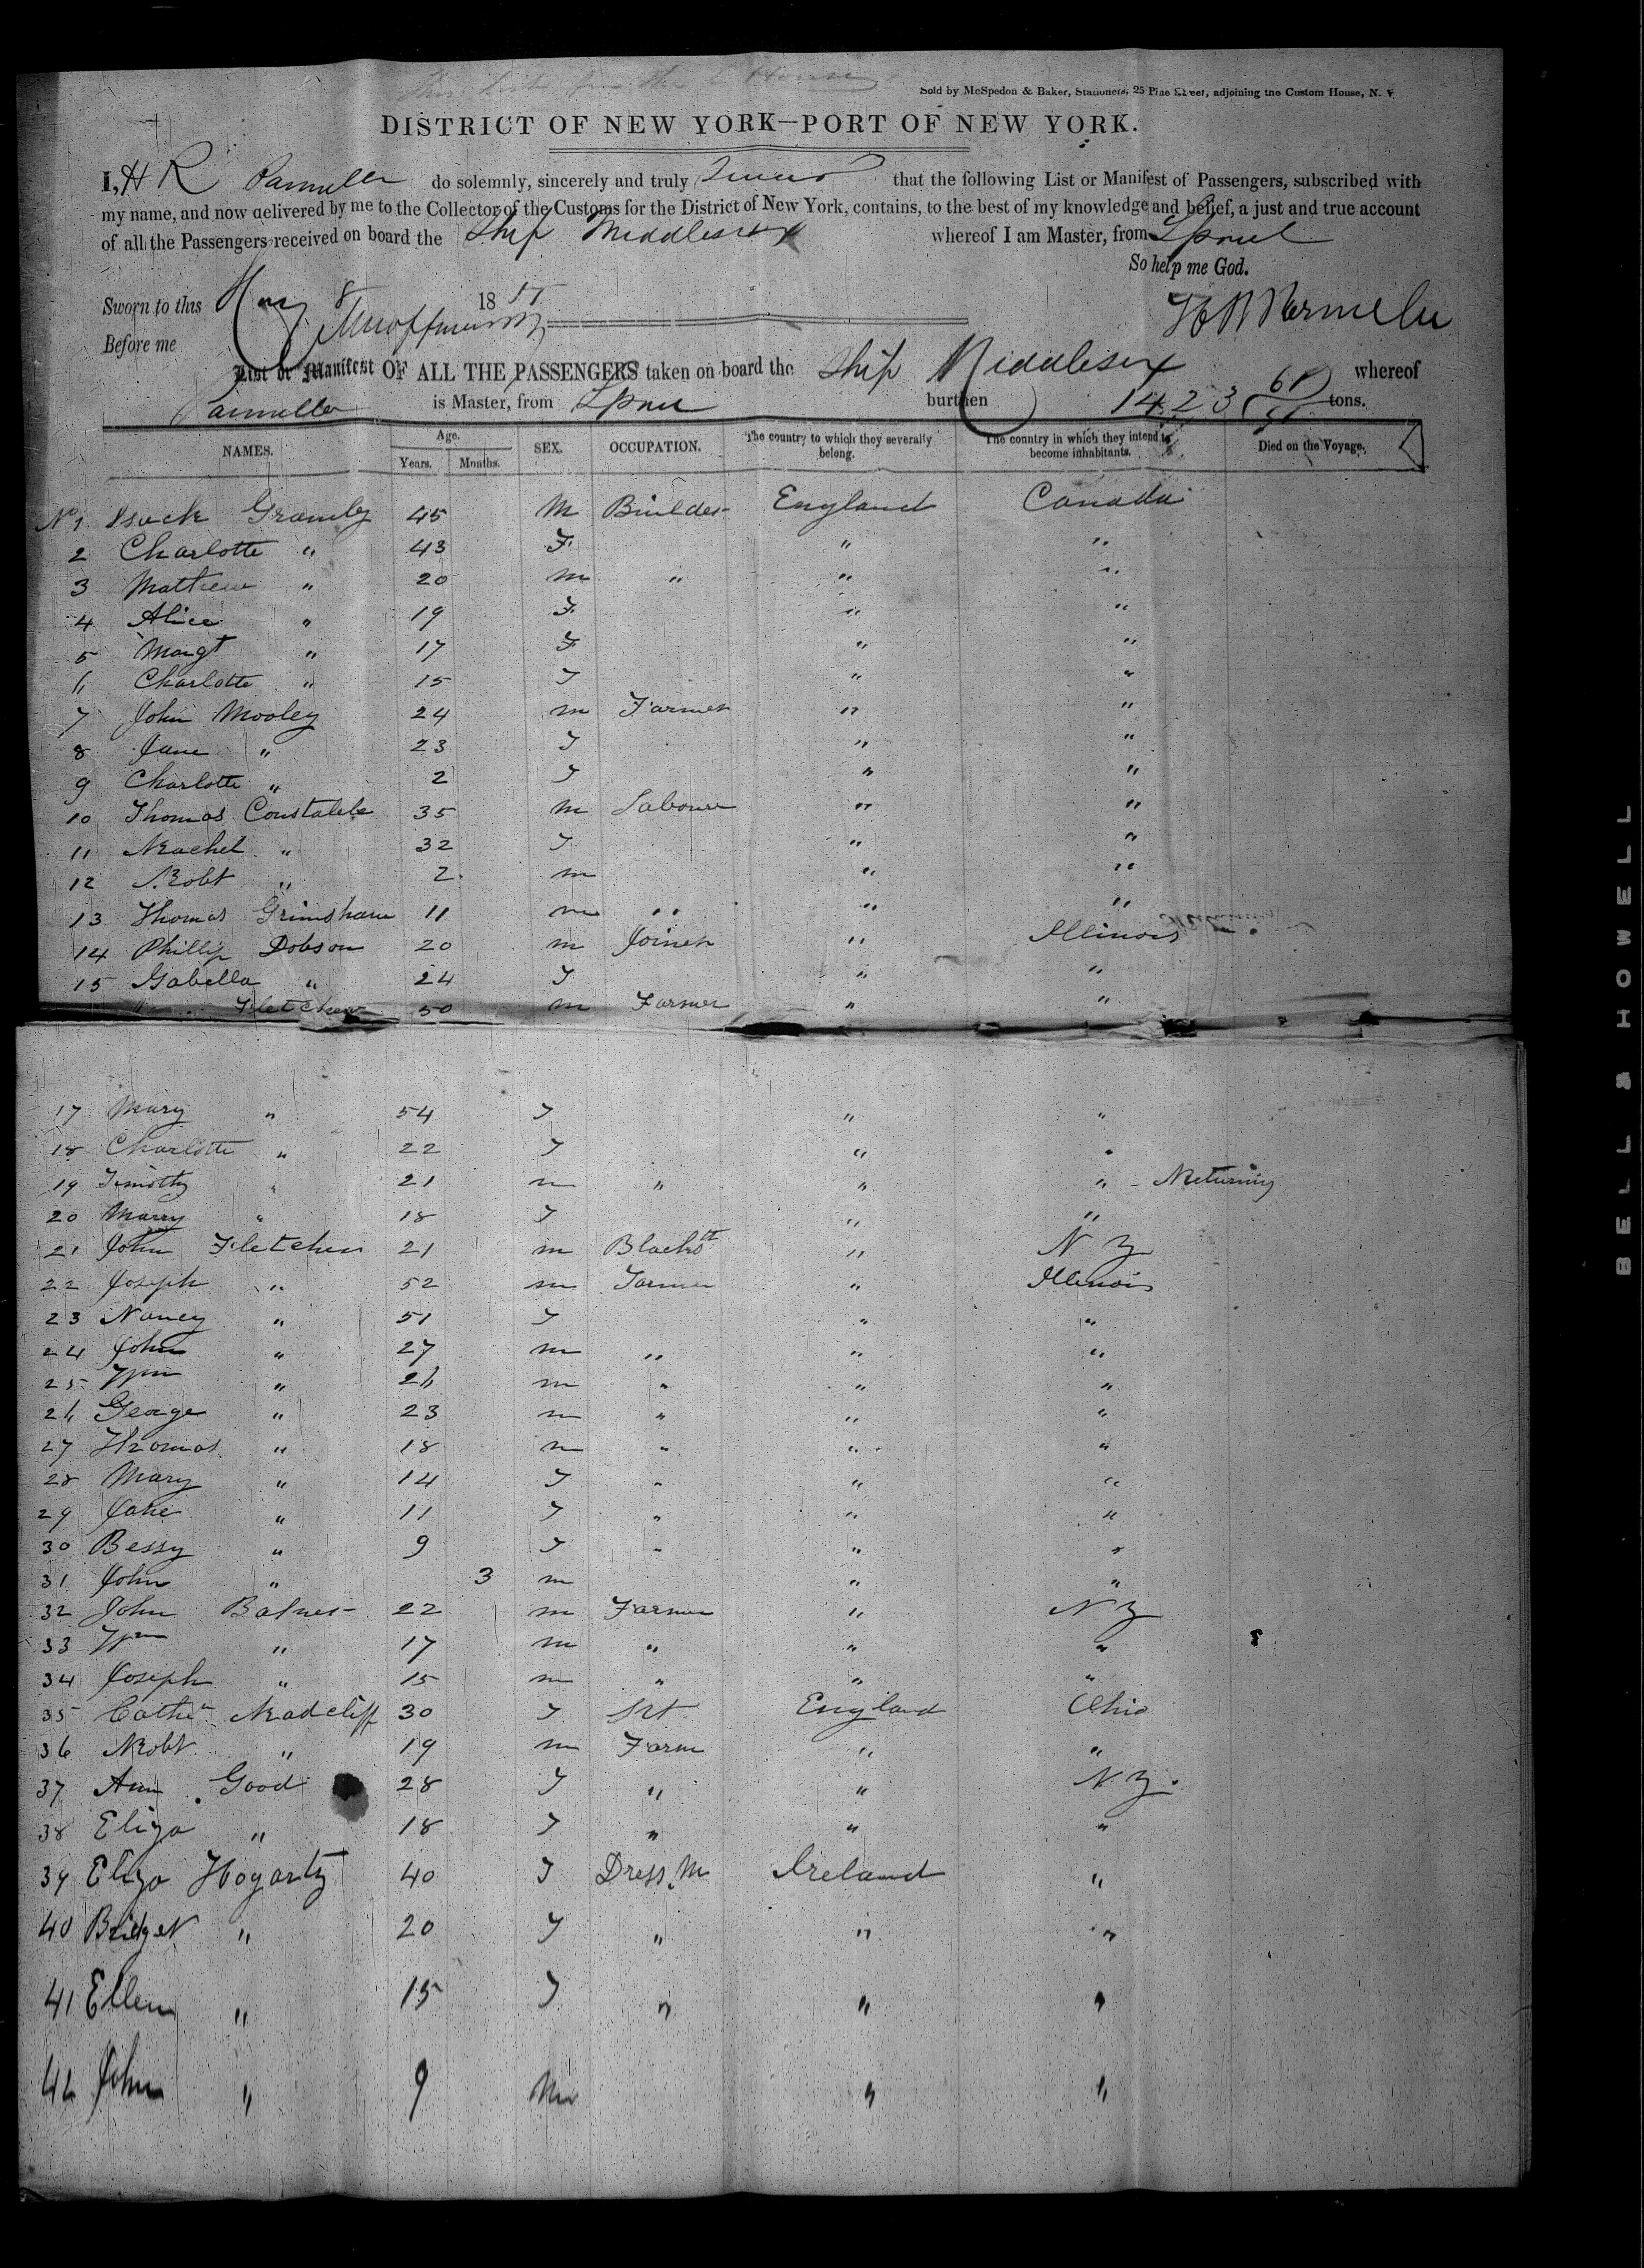 Sold by McSpedon & Baker, Stationers, 25 Pine Street, adjoining the Custom House, N. Y
DISTRICT OF NEW YORK—PORT OF NEW YORK.
I, H R do solemnly, sincerely and truly that the following List or Manifest of Passengers, subscribed with
my name, and now delivered by me to the Collector of the Customs for the District of New York, contains, to the best of my knowledge and belief, a just and true account
of all the Passengers received on board the Ship Middlesex whereof I am Master, from Lpool
So help me God.
Sworn to this 8 18
Before me
List or Manifest OF ALL THE PASSENGERS taken on board the Ship Middlesex whereof
is Master, from Lpool burthen 1423 tons.
NAMES. Age. Years. Months. SEX. OCCUPATION. The country to which they severally belong. The country in which they intend to become inhabitants. Died on the Voyage.
No 1 Isack 45 M Builder England Canada
2 Charlotte " 43 F " "
3 Mathew " 20 m " " "
4 Alice " 19 F " "
5 Margt " 17 F " "
6 Charlotte " 15 F " "
7 John Mooley 24 m Farmer " "
8 Jane " 23 F " "
9 Charlotte " 2 F " "
10 Thomas Constable 35 m Labourer " "
11 Rachel " 32 F " "
12 Robt " 2 m " "
13 Thomas Grimshaw 11 m " " "
14 Phillip Dobson 20 m Joiner " Illinois
15 Isabella " 24 F " "
" Fletcher 50 m Farmer " "
17 Mary " 54 F " "
18 Charlotte " 22 F " "
19 Timothy " 21 m " " " - Returning
20 Marry " 18 F " "
21 John Fletcher 21 m Blacksth " N Y
22 Joseph " 52 m Farmer " Illinois
23 Nancy " 51 F " "
24 John " 27 m " " "
25 Wm " 26 m " " "
26 George " 23 m " " "
27 Thomas " 18 m " " "
28 Mary " 14 F " " "
29 Jane " 11 F " " "
30 Bessy " 9 F " " "
31 John " 3 m " "
32 John 22 m Farmer " N Y
33 Wm " 17 m " " "
34 Joseph " 15 m " " "
35 Cathe Radcliff 30 F England Ohio
36 Robt " 19 m Farm " "
37 Ann Good 28 F " " N Y.
38 Eliza " 18 F " " "
39 Eliza Hogarty 40 F Dress M Ireland "
40 Bridget " 20 F " " "
41 Ellen " 15 F " " "
42 John " 9 m " "
BELL & HOWELL